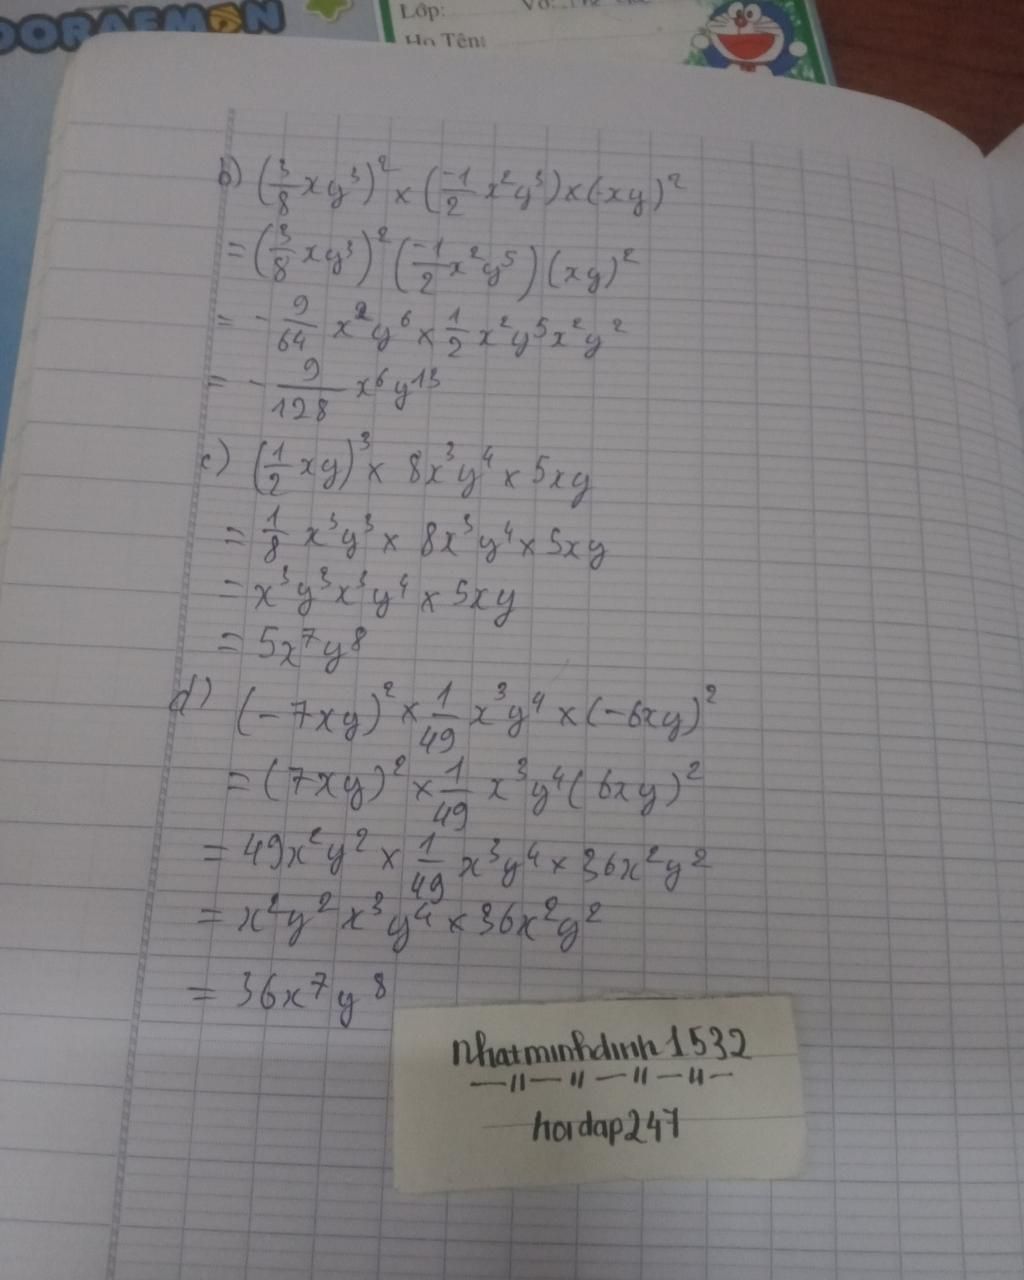 DORAEMON
Lớp:
Họ Tên:
b) (3/8 xy³)² × (-1/2 x²y⁵) × (-xy)²
= (3/8 xy³)² (-1/2 x²y⁵) (xy)²
= - 9/64 x²y⁶ × 1/2 x²y⁵x²y²
= - 9/128 x⁶y¹³
c) (1/2 xy)³ × 8x³y⁴ × 5xy
= 1/8 x³y³ × 8x³y⁴ × 5xy
= x³y³x³y⁴ × 5xy
= 5x⁷y⁸
d) (-7xy)² × 1/49 x³y⁴ × (-6xy)²
= (7xy)² × 1/49 x³y⁴(6xy)²
= 49x²y² × 1/49 x³y⁴ × 36x²y²
= x²y²x³y⁴ × 36x²y²
= 36x⁷y⁸
nhatminhdinh1532
hoidap247